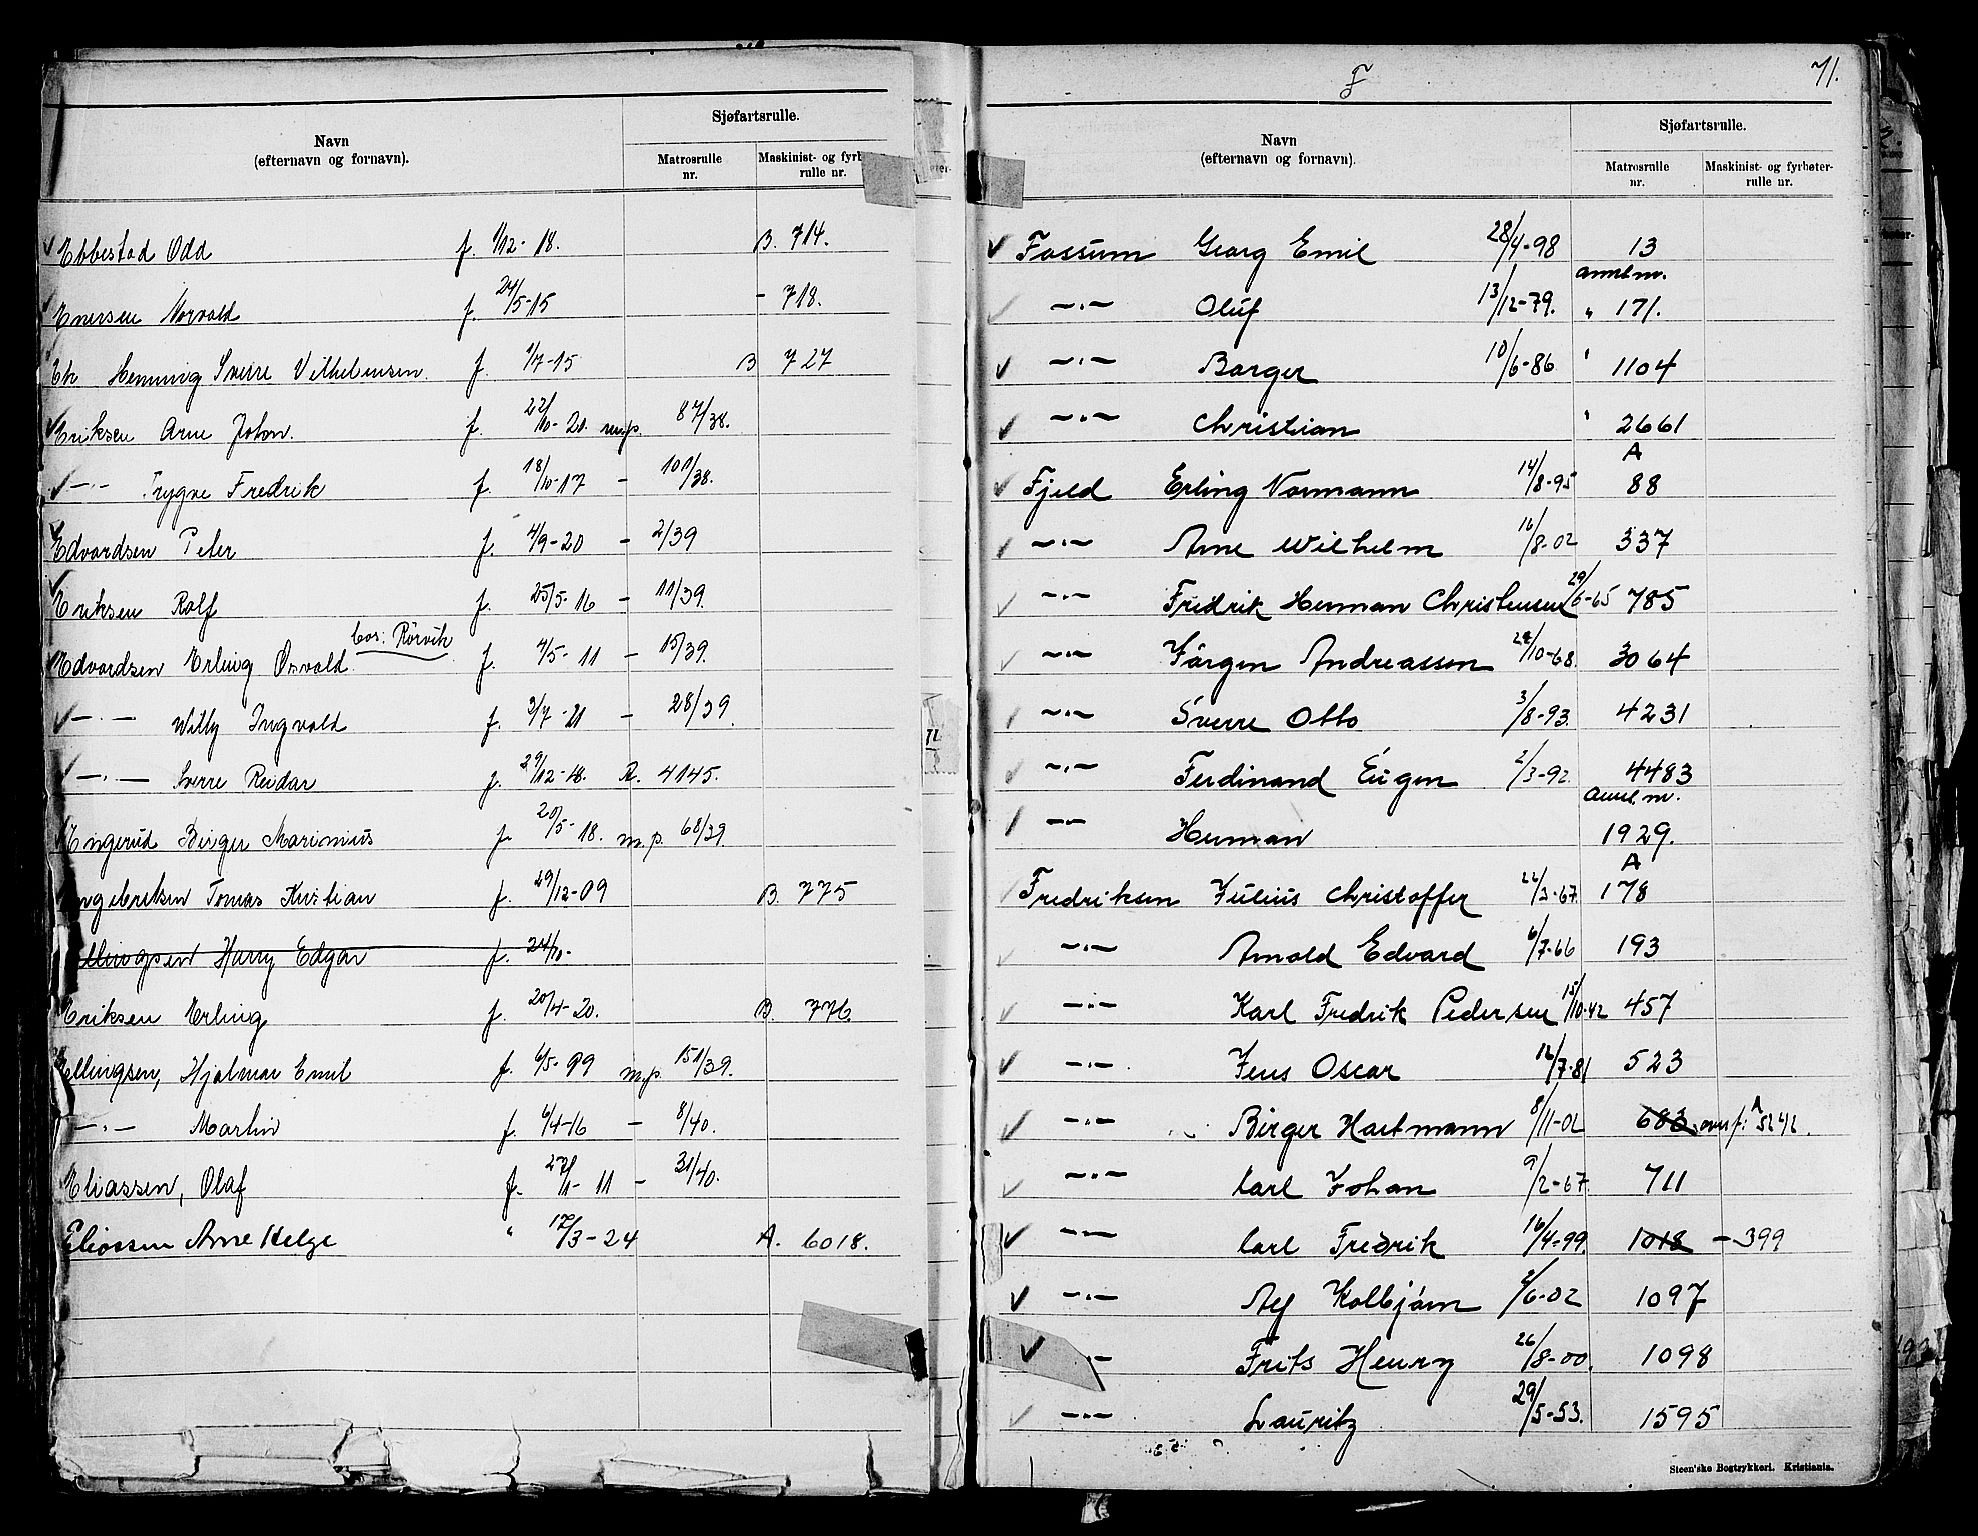 Navn
(efternavn og fornavn).
Sjøfartsrulle.
Matrosrulle
nr.
Maskinist- og fyrbø
rulle nr.
Ebbestad Odd f. 1/12-18. B. 714.
Enersen Norvald f. 24/5-15 - 718.
Ek Henning Sverre Vilhelmsen. f. 1/7-15 B 727
Eriksen Arne Johan. f. 22/10-20. m.p. 87/38.
-"- Trygve Fredrik f. 18/10-17 - 101/38.
Edvardsen Peter f. 4/9-20 - 2/39
Eriksen Rolf f. 25/5-16 - 11/39.
bor: Rörvik
Edvardsen Erling Osvald f. 4/5-11 - 15/39.
-"- Willy Ingvald f. 3/7-21 - 28/39.
-"- Sverre Reidar f. 29/12-18. A. 4145.
Engerud Birger Marinius f. 20/5-18. m.p. 68/39.
Engebriksen Tomas Kristian f. 29/12-09 B. 775
Ellingsen Harry Edgar f. 24/10-
Eriksen Erling f. 20/4-20. B. 776.
Ellingsen, Hjalmar Emil f. 6/5-99 m.p. 151/39.
-"- Martin f. 6/4-16 - 8/40.
Eliassen, Olaf f. 11-11 - 31/40.
Eliassen Arne Helge " 17/3-24 A. 6018.
F
71.
Navn
(efternavn og fornavn).
Sjøfartsrulle.
Matrosrulle
nr.
Maskinist- og fyrbøter-
rulle nr.
Fossum Georg Emil 28/4-98 13
annt.nr.
-"- Oluf 13/12-79. " 171.
-"- Borger 10/6-86 " 1104
-"- Christian " 2661
A
Fjeld Erling Normann 14/8-95 88
-"- Arne Wilhelm 16/8-02 337
-"- Fredrik Herman Christensen 29/6-65 785
-"- Jörgen Andreassen 24/10-68. 3064
-"- Sverre Otto 3/8-93. 4231
-"- Ferdinand Eugen 2/3-92. 4483
annt.nr.
-"- Herman 1929.
A
Fredriksen Julius Christoffer 22/3-67. 178
-"- Arnold Edvard 6/7-66 193
-"- Karl Fredrik Pedersen 15/10-42 457
-"- Jens Oscar 12/7-81 523
-"- Birger Hartmann 8/11-02 683, overf: A 5242.
-"- Carl Johan 9/2-67. 711
-"- Carl Fredrik 16/4-99. 1018 - 399
-"- Alf Kolbjörn 2/6-02 1097
-"- Frits Henry 26/8-00. 1098
-"- Lauritz 29/5-53. 1595
Steen'ske Bogtrykkeri. Kristiania.